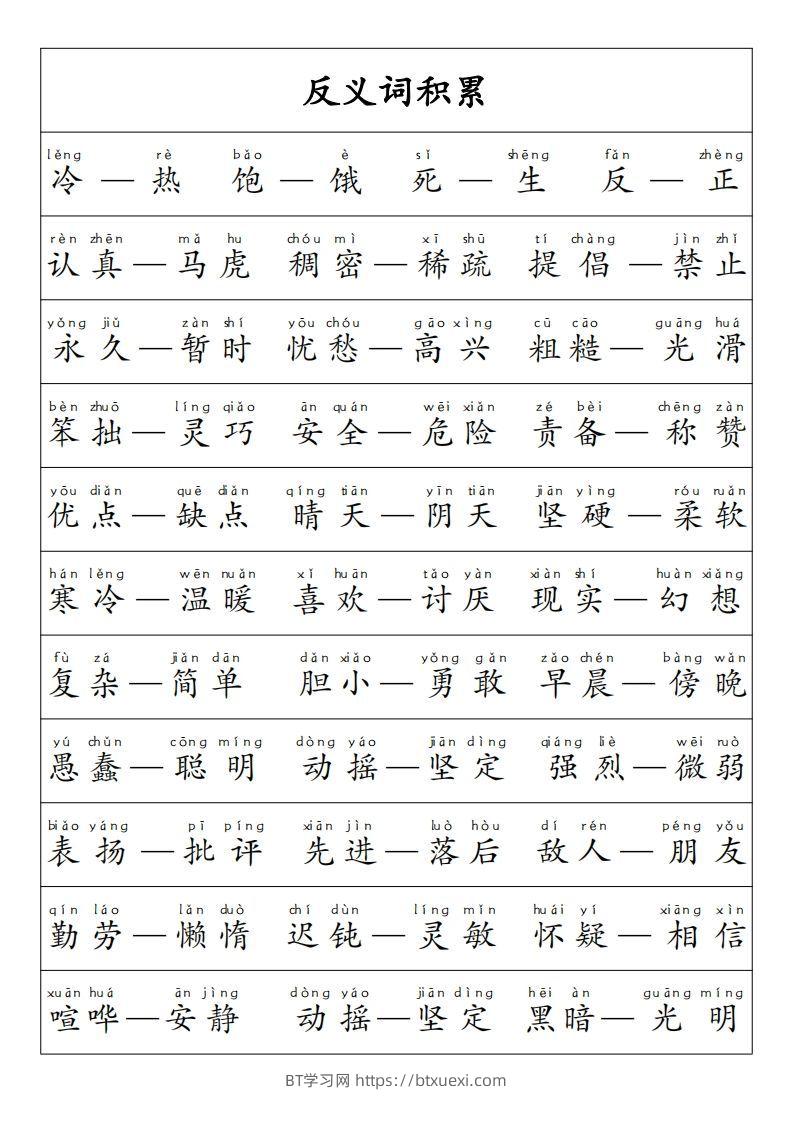 反义词积累
lěng rè bǎo è sǐ shēng fǎn zhèng
冷 — 热 饱 — 饿 死 — 生 反 — 正
rèn zhēn mǎ hu chóu mì xī shū tí chàng jìn zhǐ
认真 — 马虎 稠密 — 稀疏 提倡 — 禁止
yǒng jiǔ zàn shí yōu chóu gāo xìng cū cāo guāng huá
永久 — 暂时 忧愁 — 高兴 粗糙 — 光滑
bèn zhuō líng qiǎo ān quán wēi xiǎn zé bèi chēng zàn
笨拙 — 灵巧 安全 — 危险 责备 — 称赞
yōu diǎn quē diǎn qíng tiān yīn tiān jiān yìng róu ruǎn
优点 — 缺点 晴天 — 阴天 坚硬 — 柔软
hán lěng wēn nuǎn xǐ huān tǎo yàn xiàn shí huàn xiǎng
寒冷 — 温暖 喜欢 — 讨厌 现实 — 幻想
fù zá jiǎn dān dǎn xiǎo yǒng gǎn zǎo chén bàng wǎn
复杂 — 简单 胆小 — 勇敢 早晨 — 傍晚
yú chǔn cōng míng dòng yáo jiān dìng qiáng liè wēi ruò
愚蠢 — 聪明 动摇 — 坚定 强烈 — 微弱
biǎo yáng pī píng xiān jìn luò hòu dí rén péng yǒu
表扬 — 批评 先进 — 落后 敌人 — 朋友
qín láo lǎn duò chí dùn líng mǐn huái yí xiāng xìn
勤劳 — 懒惰 迟钝 — 灵敏 怀疑 — 相信
xuān huá ān jìng dòng yáo jiān dìng hēi àn guāng míng
喧哗 — 安静 动摇 — 坚定 黑暗 — 光明
BT学习网 https://btxuexi.com